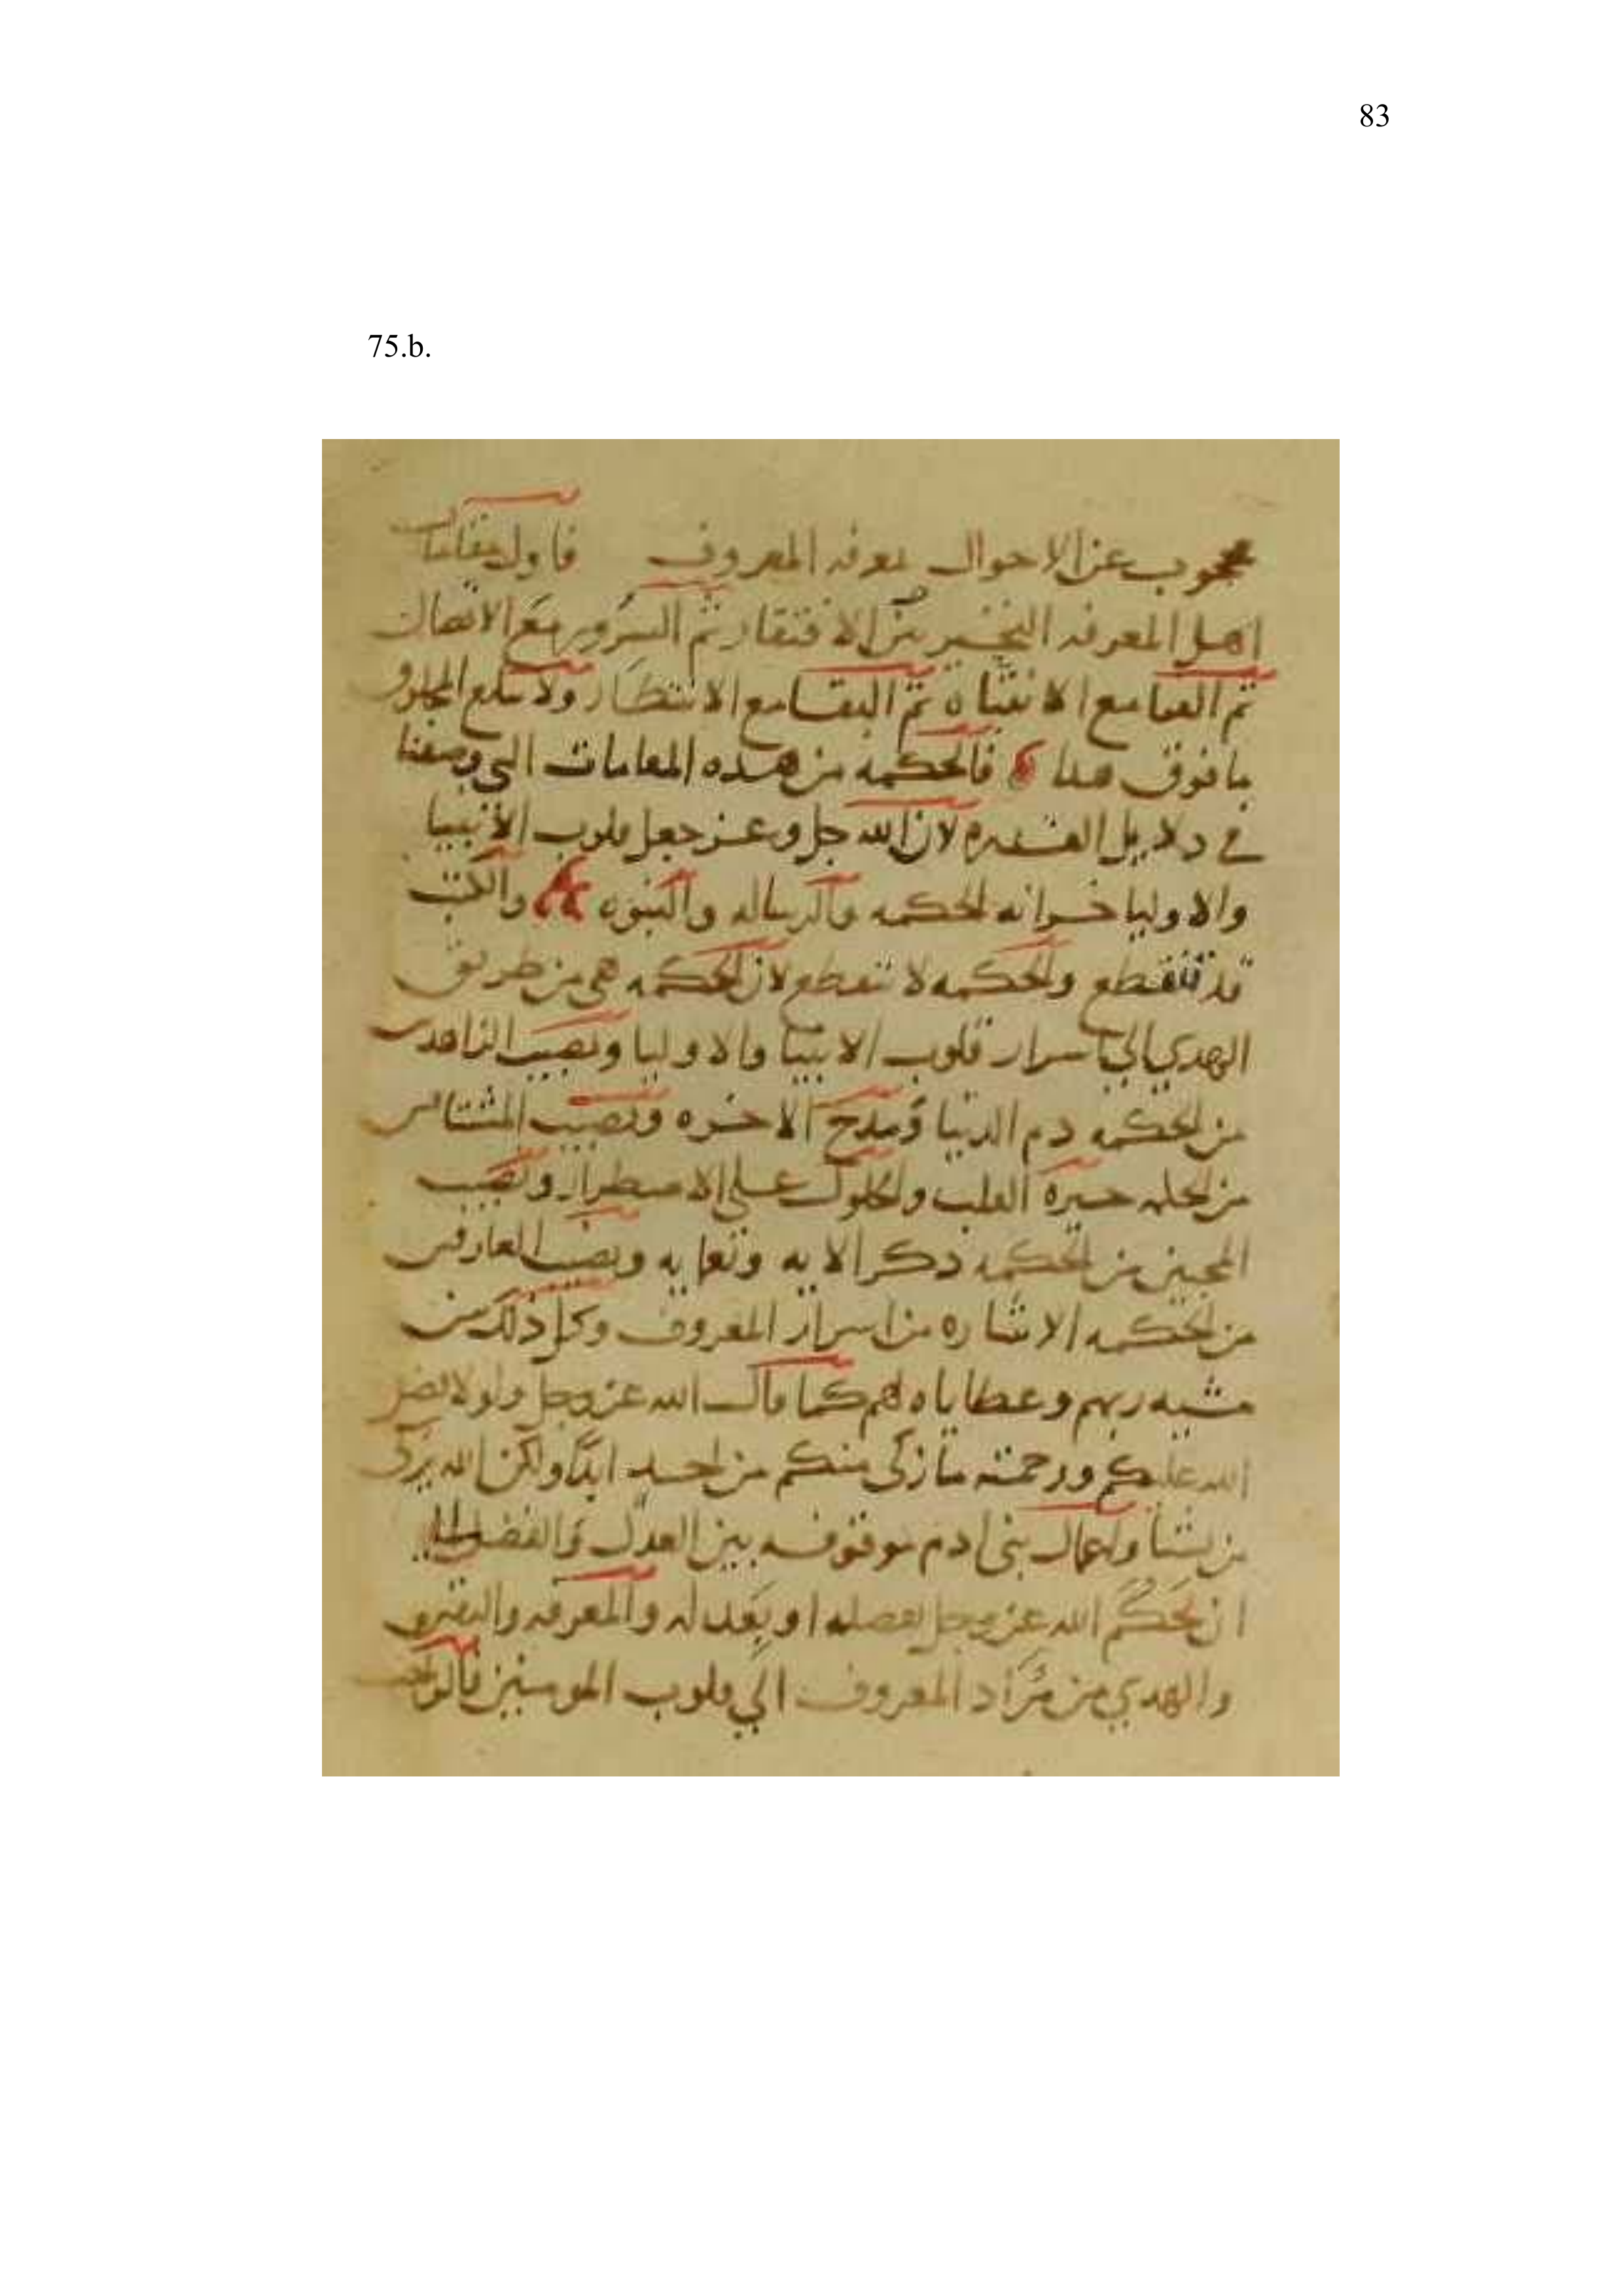 83
75.b.
محجوب عن الاحوال بمعرفه المعروف فاول مقامات
اهل المعرفه التحير من الافتقار ثم السرور مع الاتصال
ثم الفنا مع الانتباه ثم البقا مع الانتظار ولا يبلغ المخلوق
ما فوق هدا فالحكمه من هده المقامات التي وصفنا
في دلايل القدره لان الله جل وعز جعل قلوب الانبيا
والاوليا خزانه لحكمه والرساله والنبوه والكتب
قد تنقطع ولحكمه لا تنقطع لان لحكمه هي من طريق
الهدي الي اسرار قلوب الانبيا والاوليا ونصيب الزاهدين
من لحكمه دم الدنيا ومدح الاخره ونصيب المشتاقين
من حيرة القلب على الاضطرار ونصيب
المحبين من لحكمه دكر الايه ونعمايه ونصيب العارفين
من لحكمه الاشاره من اسرار المعروف وكل ذلك من
مشيه ربهم وعطاياه لهم كما قال الله عز وجل ولولا فضل
الله عليكم ورحمته ما زكى منكم من احد ابدا ولكن الله يزكي
من يشا واعمال بنى ادم موقوفه بين العدل والفضل
ان يحكم الله عز وجل بفضله او بعدله والمعرفه واليقين
والهدي من مراد المعروف الي قلوب المومنين